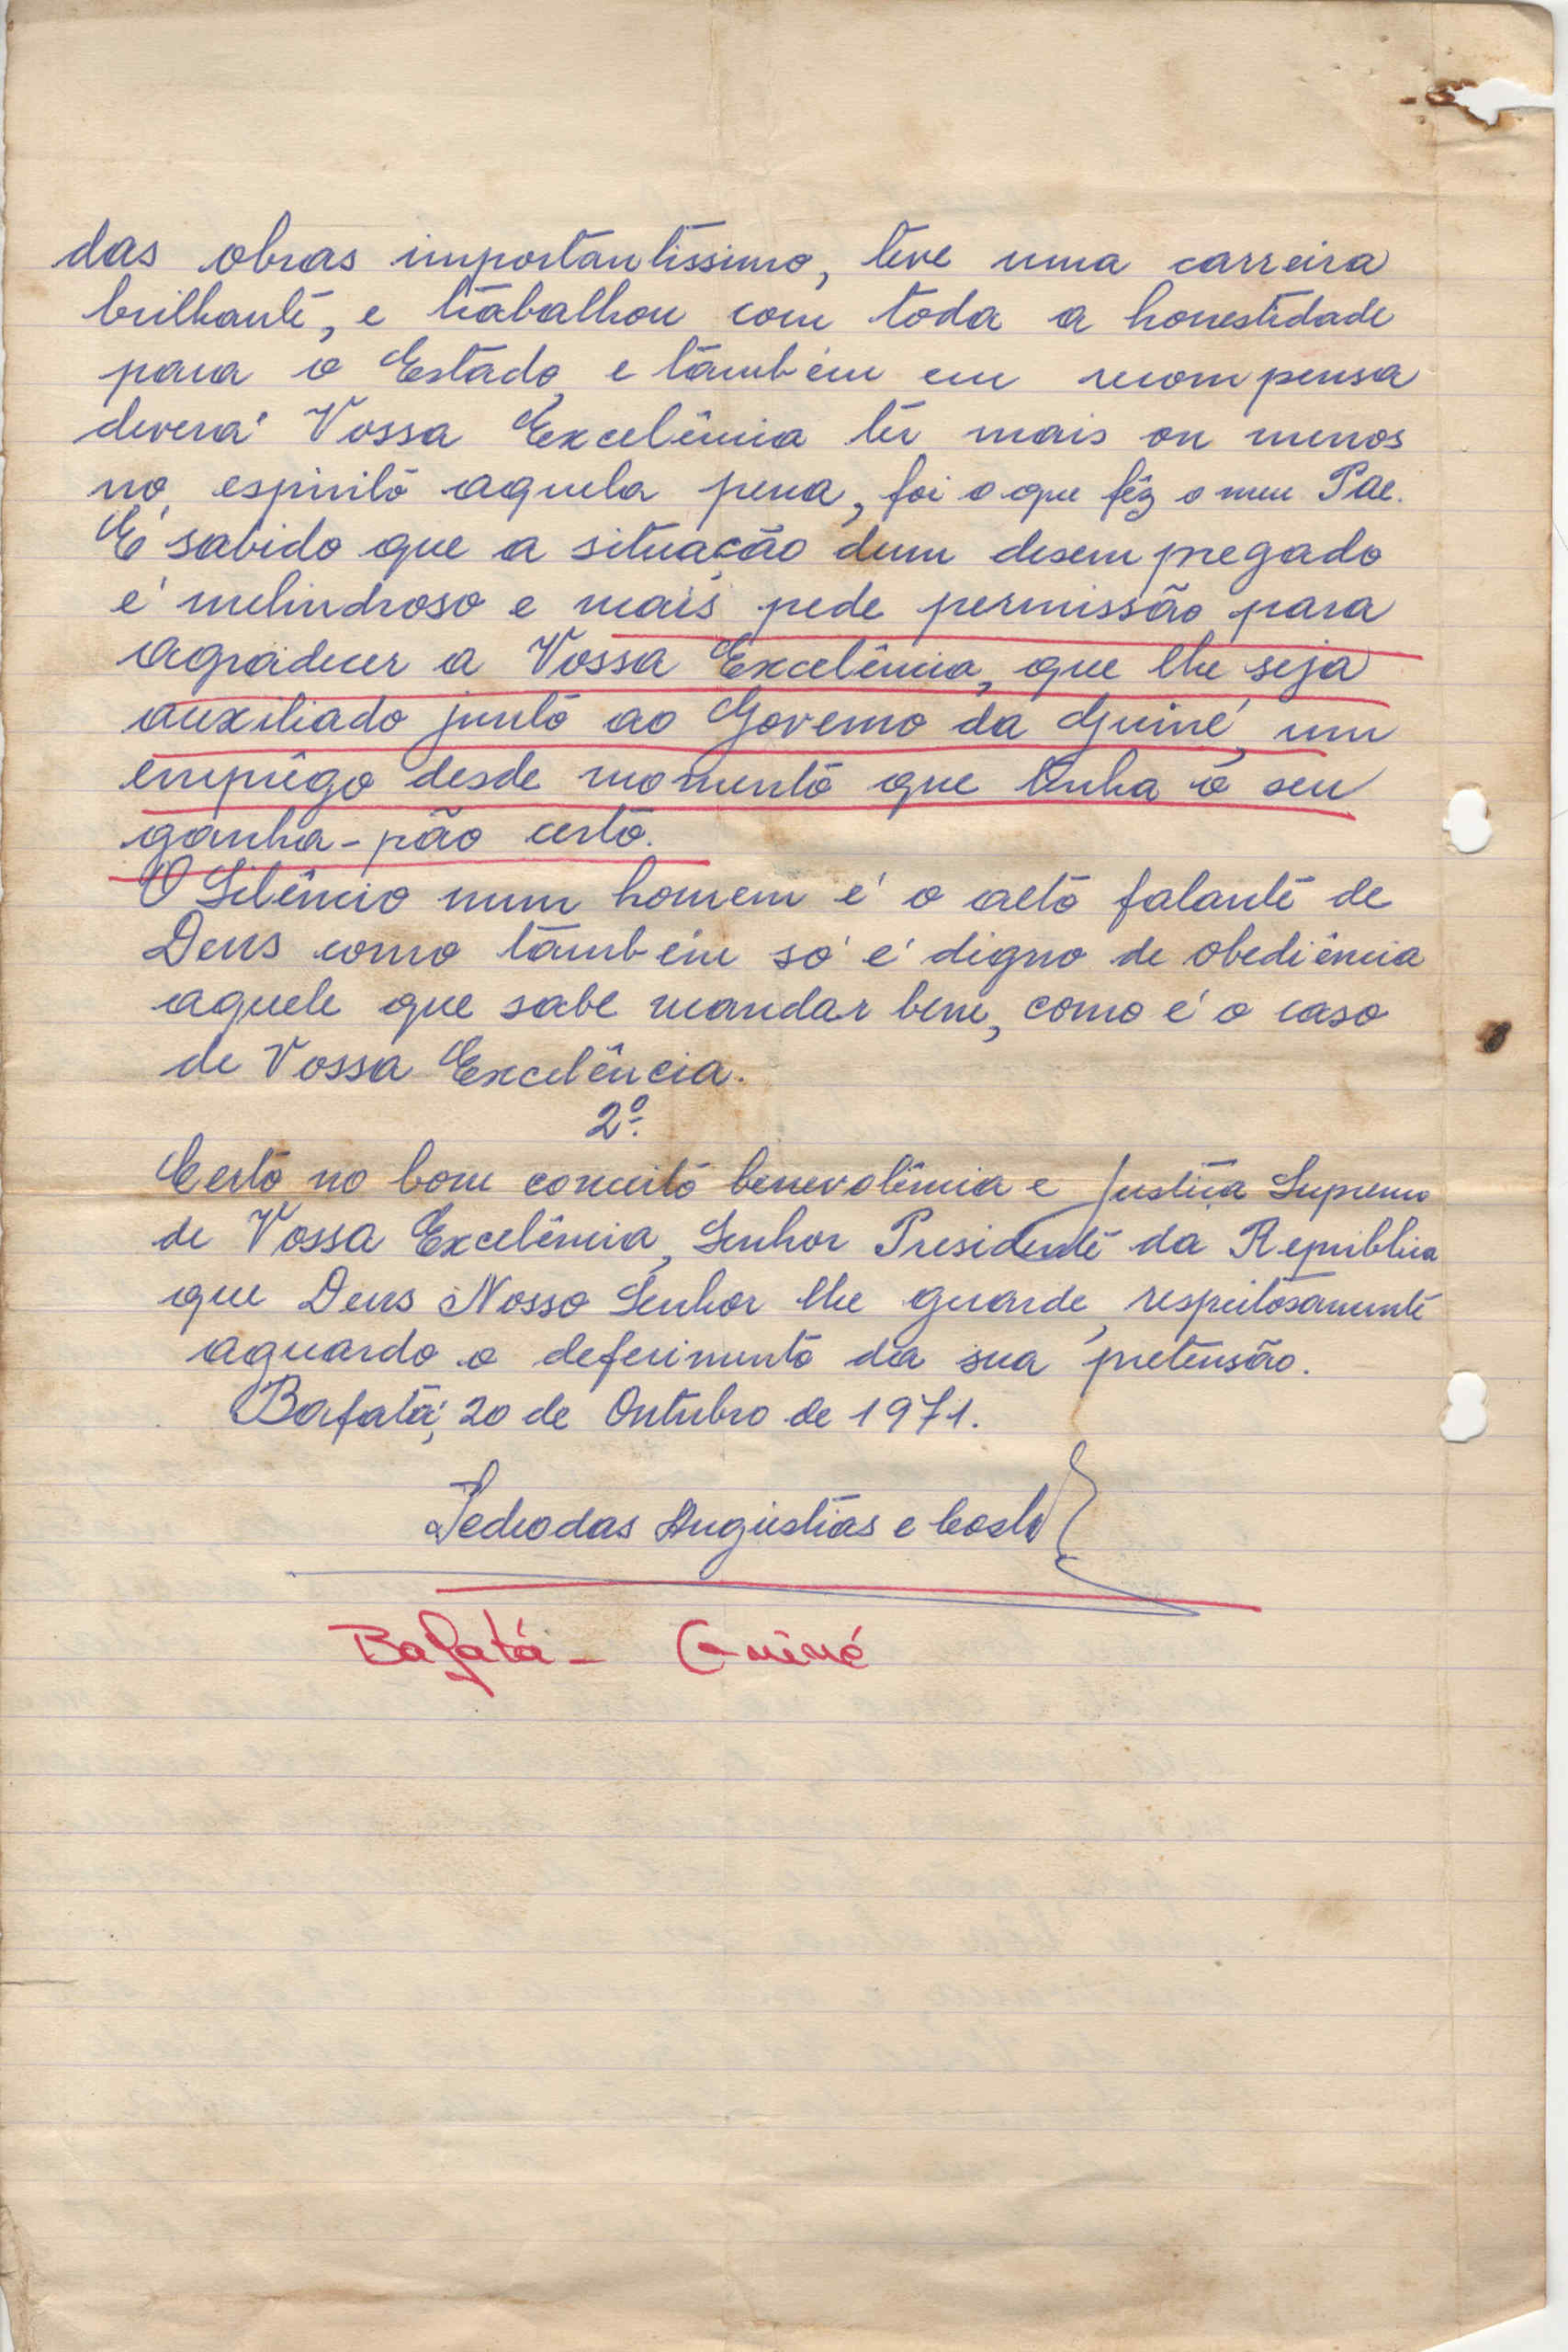 das obras importantissimo, teve uma carreira
brilhante, e trabalhou com toda a honestidade
para o Estado, e também em recompensa
deverá Vossa Excelência ter mais ou menos
no espirito aquela pena, foi o que fêz o meu Pae.
É sabido que a situação dum desempregado
é melindroso e mais pede permissão para
agradecer a Vossa Excelência, que lhe seja
auxiliado junto ao Governo da Guiné, um
emprêgo desde momento que tenha o seu
ganha-pão certo.
O Silêncio num homem é o alto falante de
Deus como também só é digno de obediência
aquele que sabe mandar bem, como é o caso
de Vossa Excelência.
2º.
Certo no bom conceito benevolência e Justiça Supremo
de Vossa Excelência, Senhor Presidente da República
que Deus Nosso Senhor lhe guarde, respeitosamente
aguardo o deferimento da sua pretensão.
Bafatá, 20 de Outubro de 1971.
Pedro das Angústias e Costa
Bafatá - Guiné